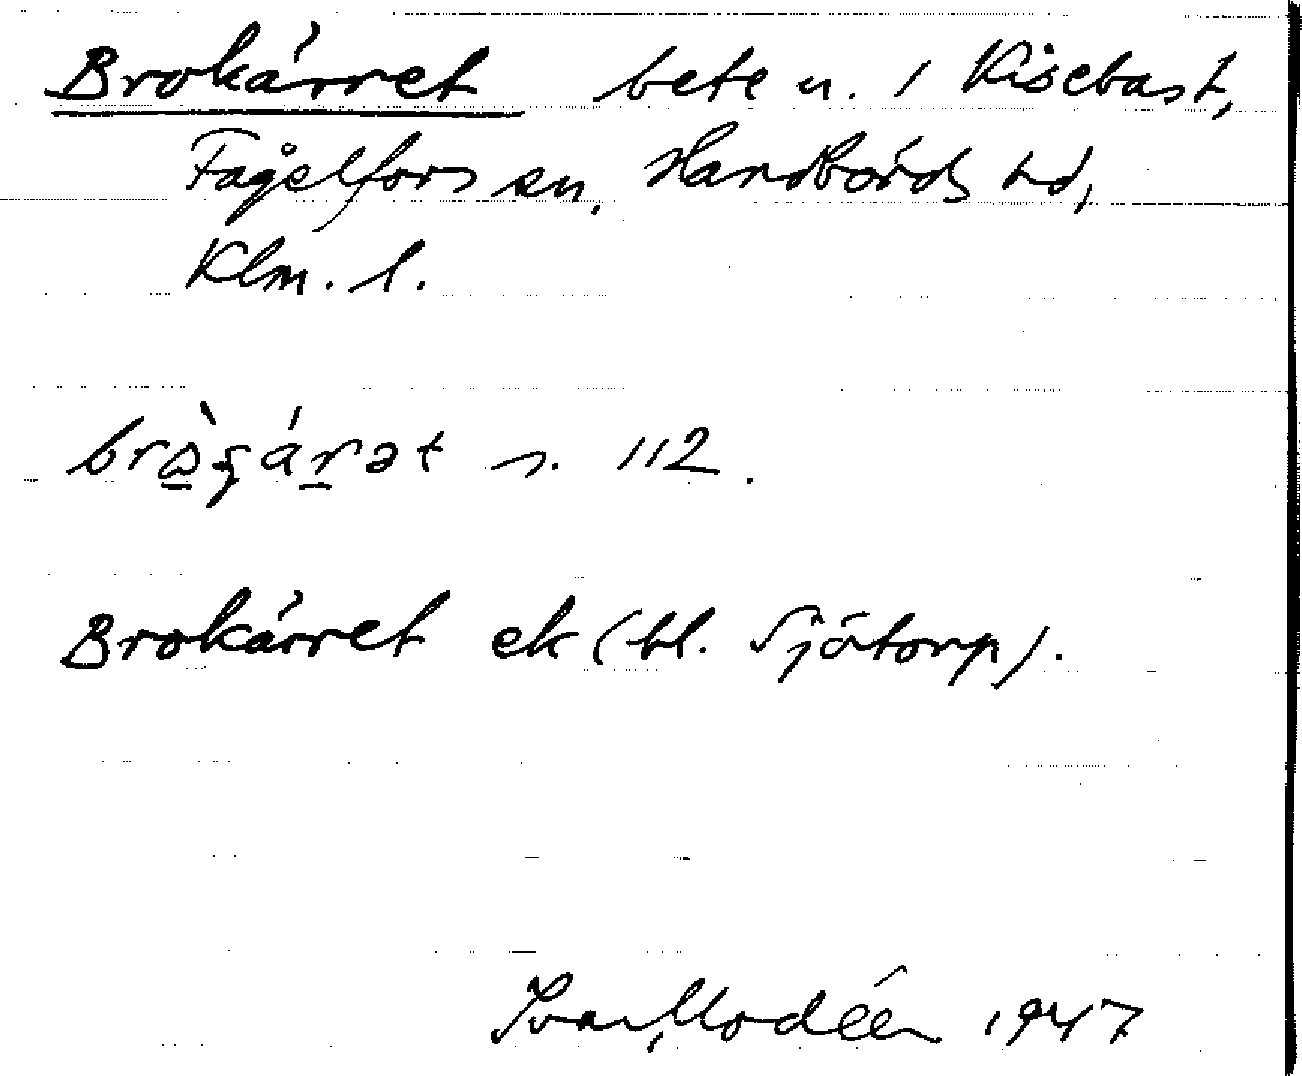 Brokärret bete n. i Kisebast,
Fågelfors sn, Handbörds hd,
Klm. l.
n. 112.
Brokärret ek (bl. Sjötorp).
Ivar Modéer 1947